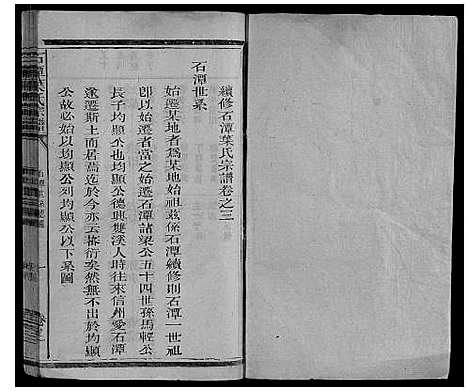 續修石潭葉氏宗譜卷之三
石潭世系
始遷某地者爲某地始祖兹係石潭續修則石潭一世祖
卽以始遷者當之始遷石潭諸梁公五十四世孫馬輕公
長子均顯公也均顯公德興雙溪人時往來信州愛石潭
遂遷斯土而居焉迄於今亦云蕃衍矣然無不出於均顯
公故必始以均顯公列均顯公以下系圖
石潭葉氏宗譜